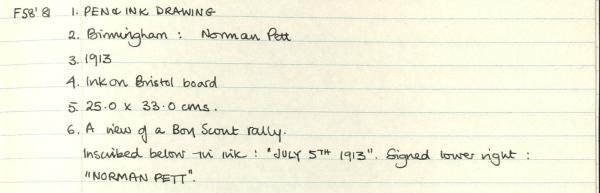 F58'81 1. PEN & INK DRAWING
2. Birmingham : Norman Pett
3. 1913
4. Ink on Bristol board
5. 25.0 x 33.0 cms.
6. A view of a Boy Scout rally.
Inscribed below in ink : "JULY 5TH 1913". Signed lower right :
"NORMAN PETT".